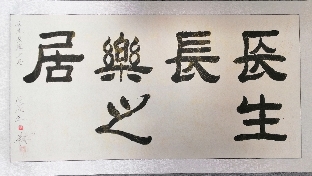 長生
長
樂之
居